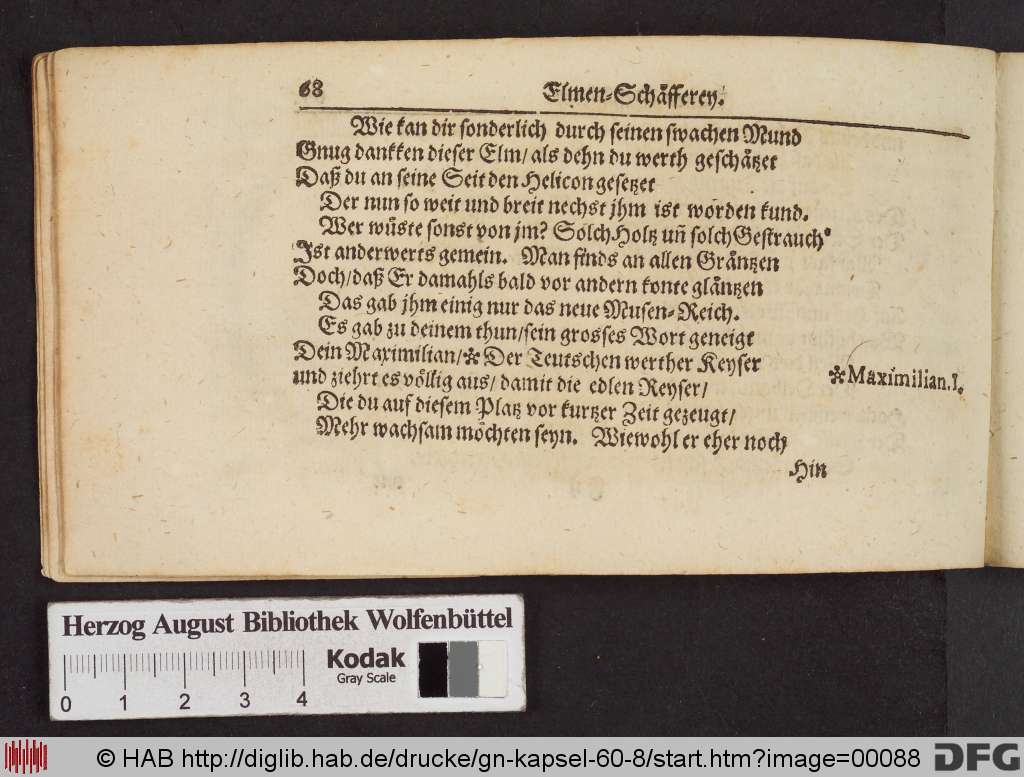 68 Elmen-Schäfferey.
Wie kan dir sonderlich durch seinen swachen Mund
Gnug dankken dieser Elm/ als dehn du werth geschätzet
Daß du an seine Seit den Helicon gesetzet
Der nun so weit und breit nechst jhm ist worden kund.
Wer wüste sonst von jm? Solch Holtz uñ solch Gestrauch
Ist anderwerts gemein. Man finds an allen Gräntzen
Doch/ daß Er damahls bald vor andern konte gläntzen
Das gab jhm einig nur das neue Musen-Reich.
Es gab zu deinem thun/ sein grosses Wort geneigt
Dein Maximilian/ * Der Teutschen werther Keyser
und ziehrt es völlig aus/ damit die edlen Reyser/
* Maximilian. I.
Die du auf diesem Platz vor kurtzer Zeit gezeugt/
Mehr wachsam möchten seyn. Wiewohl er eher noch
Hin
Herzog August Bibliothek Wolfenbüttel
Kodak
Gray Scale
0 1 2 3 4
© HAB http://diglib.hab.de/drucke/gn-kapsel-60-8/start.htm?image=00088
DFG